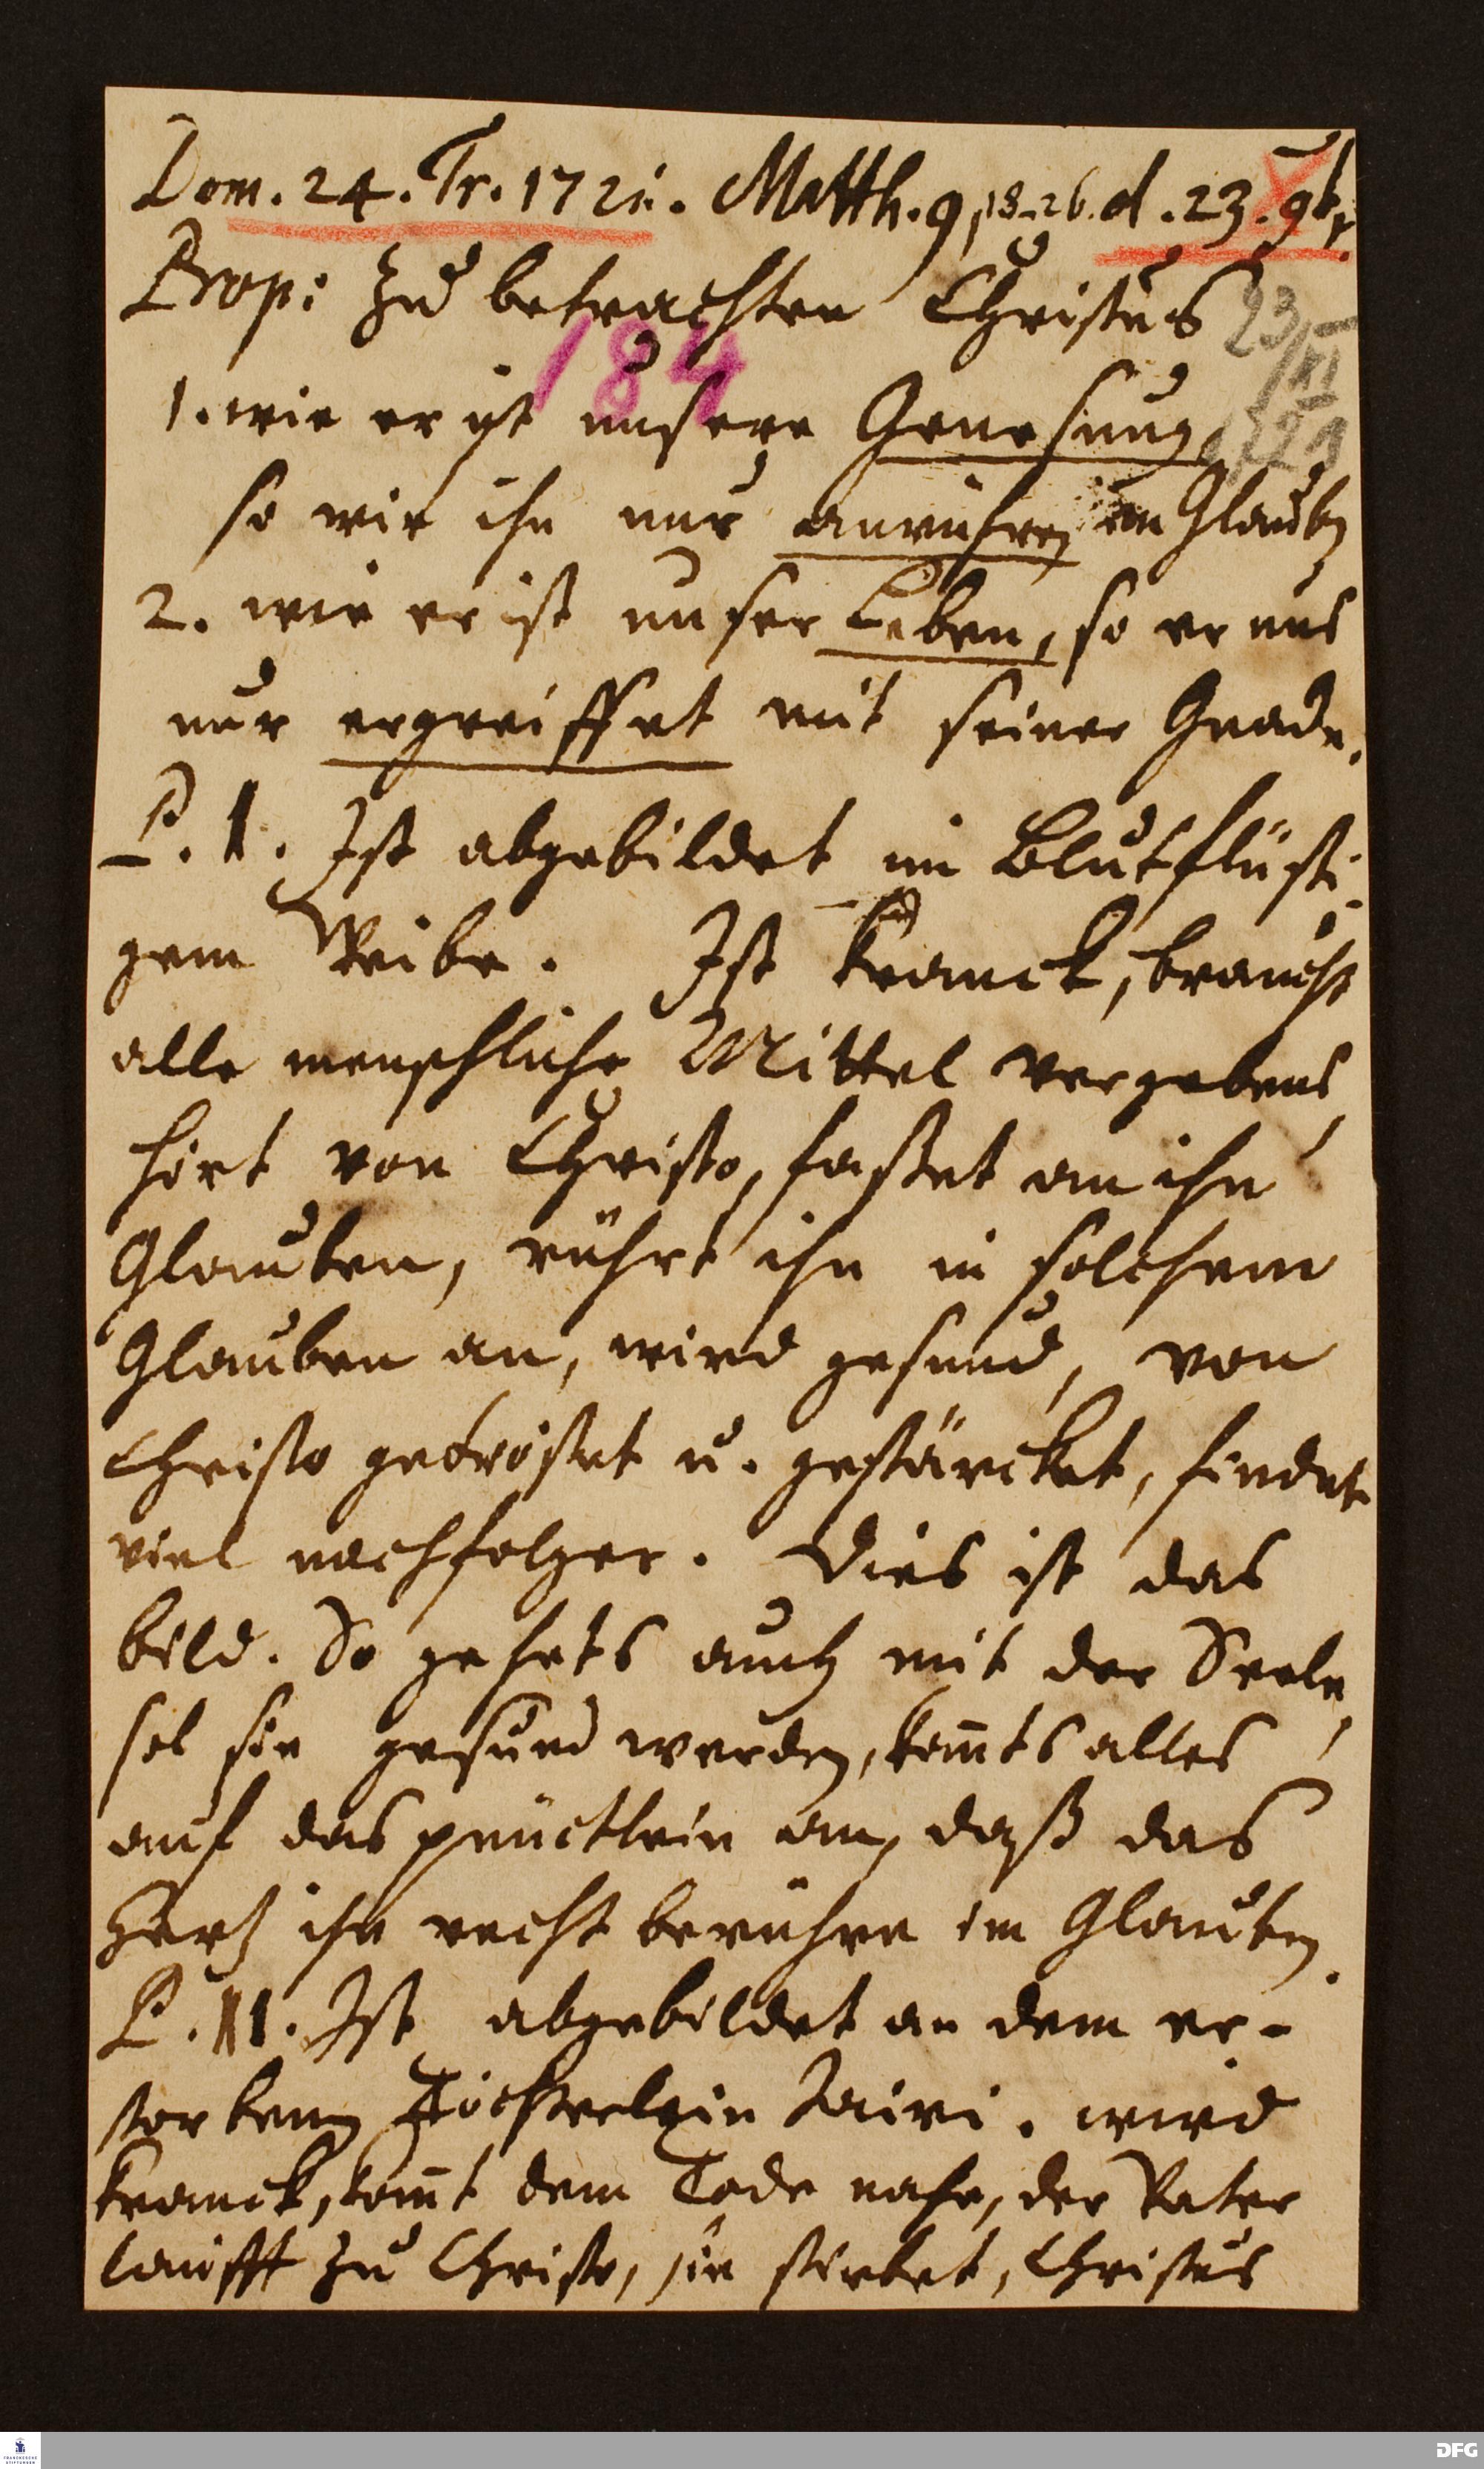 Dom. 24. Tr. 1721. Matth. 9, 18-26. d. 23. 9br.
Prop: Zu betrachten Christus
23/XI
184
1. wie er ist unsere Genesung,
1721
so wir ihn nur anrühren im Glaubn
2. wie er ist unser Leben, so er uns
nur ergreiffet mit seiner Gnade.
P. I. Ist abgebildet im Blutflüßi-
gem Weibe. Ist kranck, braucht
alle menschliche Mittel vergebens,
hört von Christo, fasset an ihn
Glauben, rührt ihn in solchem
Glauben an, wird gesund, von
Christo getröstet u. gestärcket, findet
viel nachfolger. Dies ist das
bild. So gehets auch mit der Seele,
sol sie gesund werden, komts alles
auf das pünctlein an, daß das
Hertz ihn recht berühre im Glauben.
P. II. Ist abgebildet an dem er-
storbenen Töchterlein Jairi. wird
kranck, komt dem Tode nahe, der Vater
laufft zu Christo, sie stirbet, Christus
FRANCKESCHE STIFTUNGEN
DFG